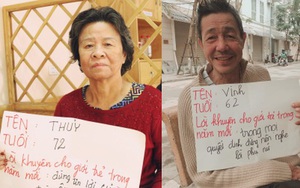 TÊN : THUỶ
TUỔI : 72
Lời khuyên cho giới trẻ trong
năm mới : đừng
TÊN : Vinh
TUỔI : 62
Lời khuyên cho giới trẻ trong
năm mới : trong mọi
quyết định đừng nên nghe
lời phụ nữ